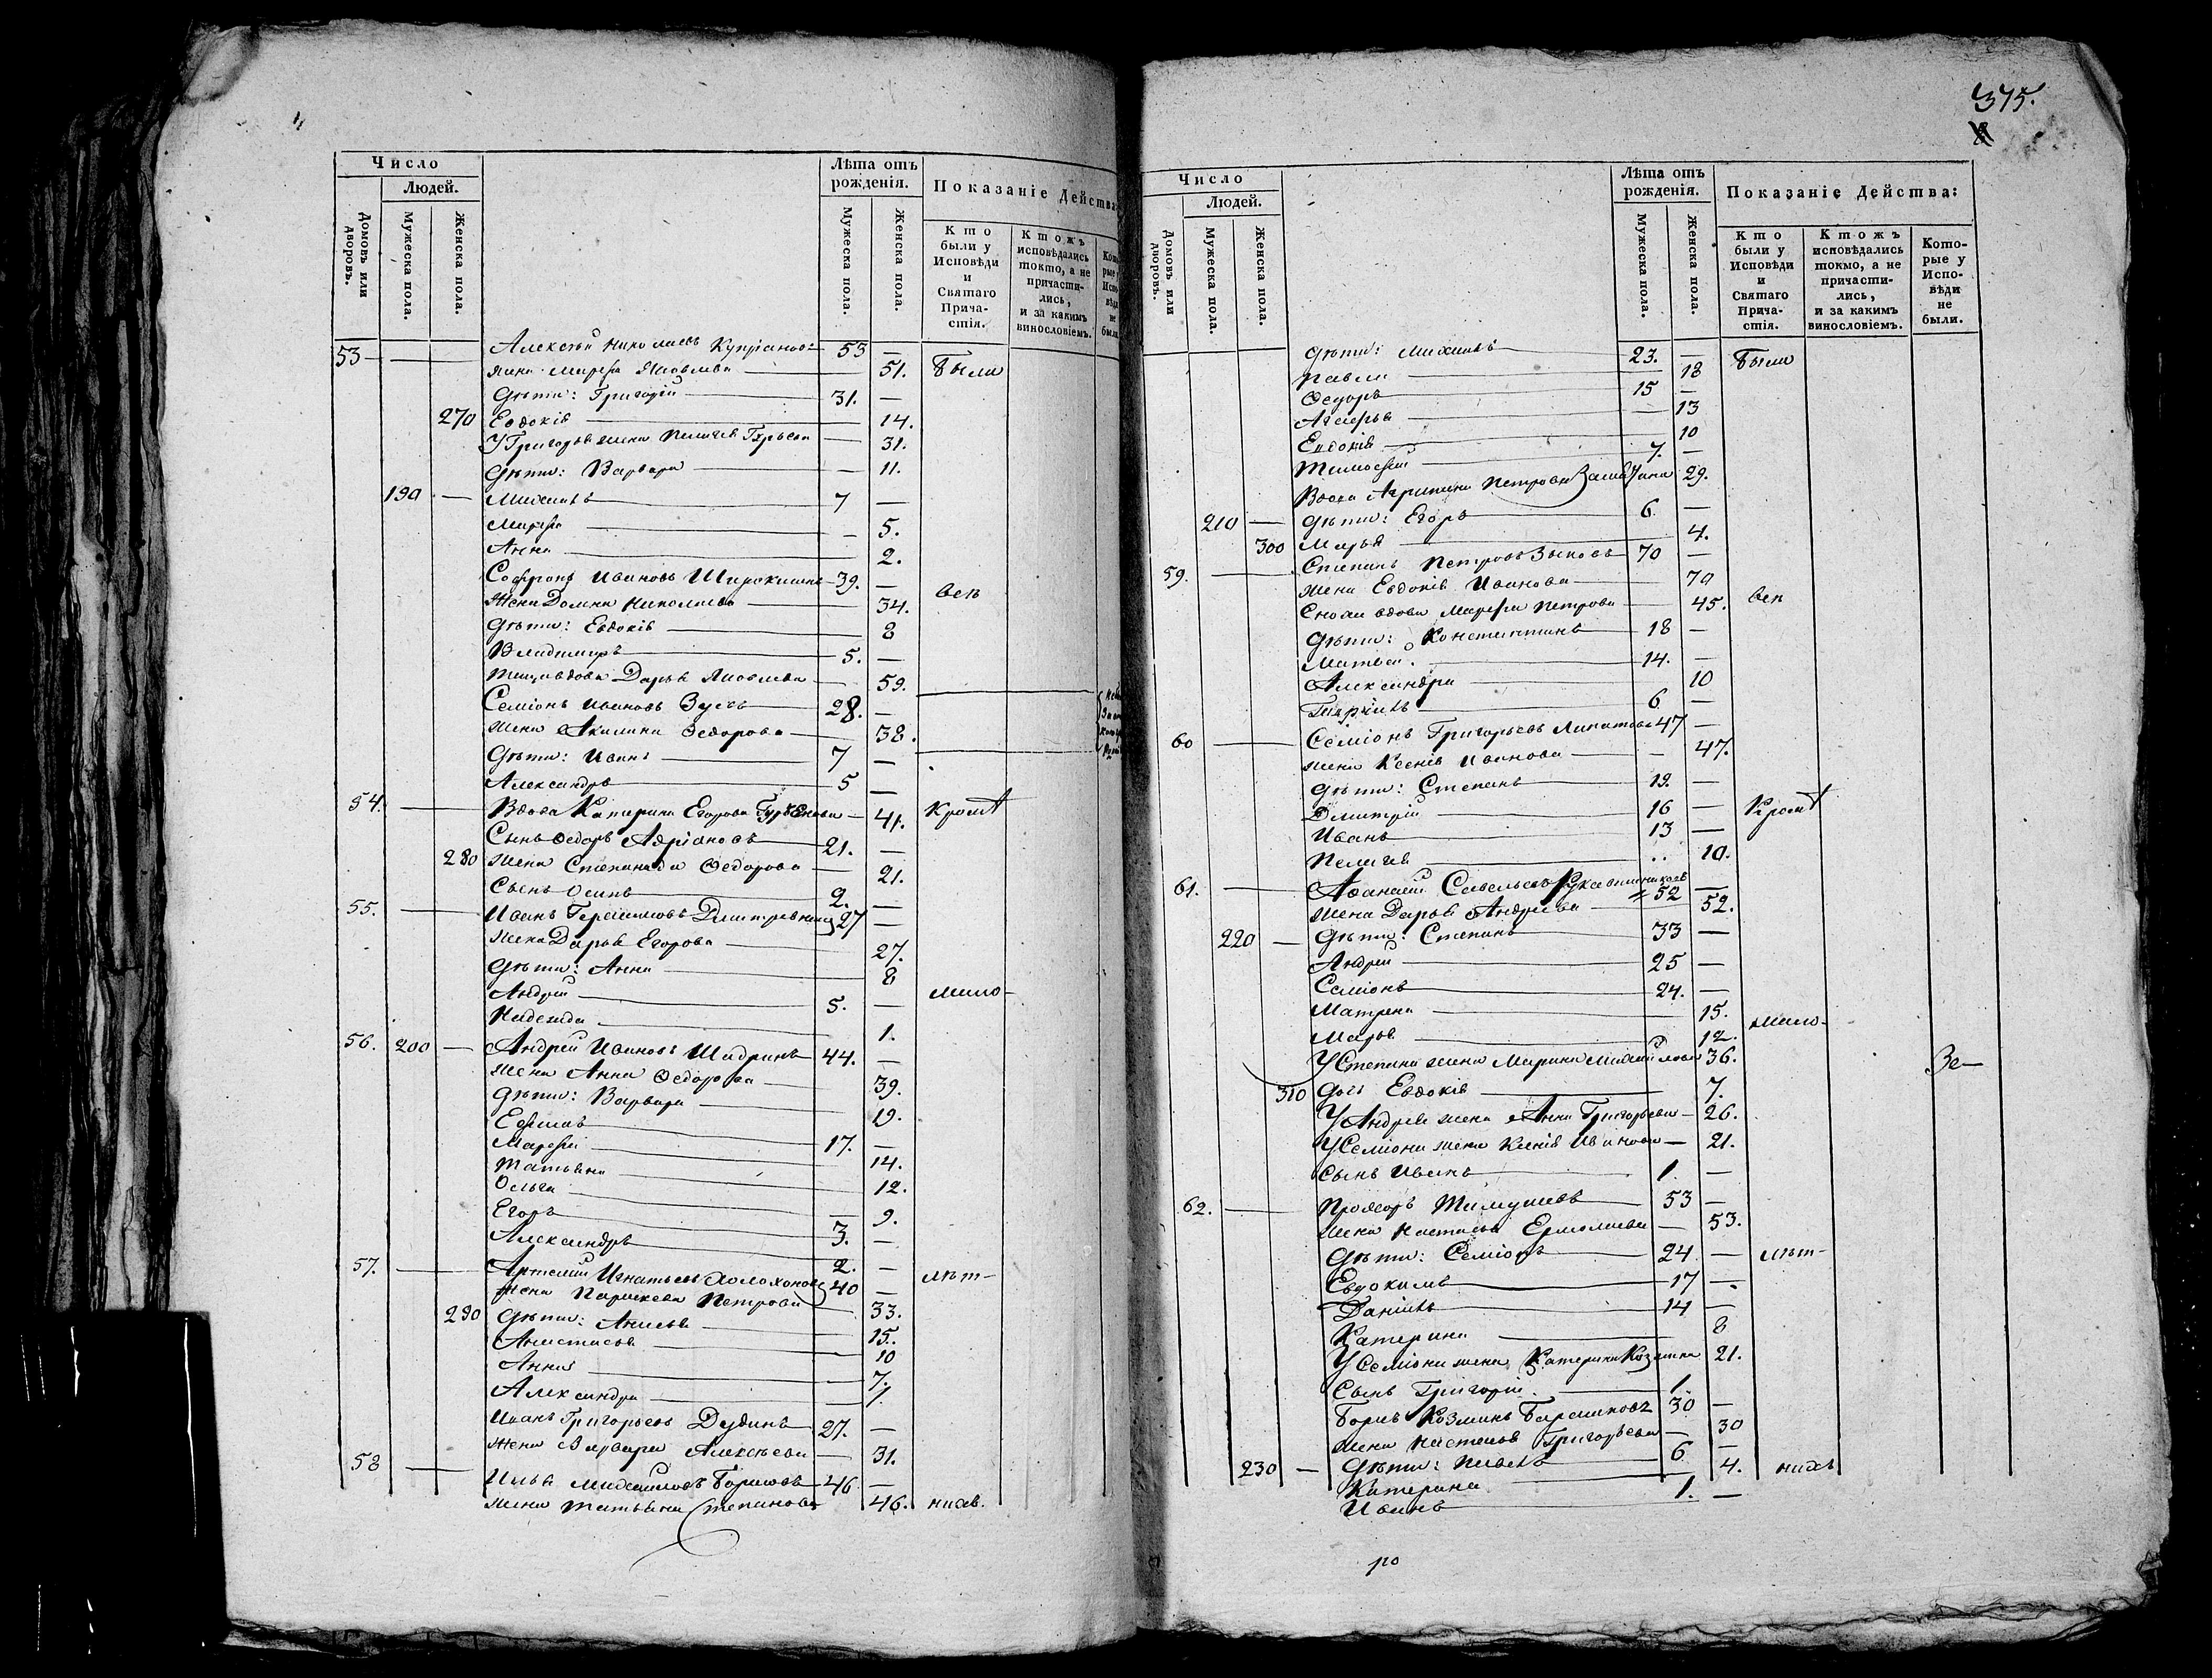 Число
Людей.
Домовъ или дворовъ.
Мужеска пола.
Женска пола.
Лѣта отъ рожденія.
Мужеска пола.
Женска пола.
Показаніе Действа:
Кто были у Исповѣди и Святаго Причастія.
Ктожъ исповѣдались токмо, а не причастились, и за какимъ винословіемъ.
53 Алексѣй Николаевъ Купріановъ 53 —
жена Марфа Яковлева 51. Были
Дѣти: Григорій 31. —
270 Евдокія 14.
У Григорья жена Пелагея 31.
Дѣти: Варвара — 11.
190 — Михаилъ 7 —
Марфа — 5.
Анна 2.
Софронъ Ивановъ 39. —
Жена Домна Николаева 34. всѣ
Дѣти: Евдокія 8
Владимиръ 5. —
Теща вдова Дарья Яковлева 59.
Семіонъ Ивановъ 28. —
жена Акилина Федорова 38.
Дѣти: Иванъ 7 —
Александръ 5 —
54. Вдова Катерина Егорова 41. Кромѣ
Сынъ Федоръ Адріановъ 21. —
280 Жена Степанида Федорова 21.
Сынъ Осипъ 2. —
55. Иванъ Герасимовъ 27 —
Жена Дарья Егорова 27.
Дѣти: Анна 8
Андрей 5. — мало-
Надежда 1.
56. 200 — Андрей Ивановъ Шадринъ 44. —
Жена Анна Федорова 39.
Дѣти: Варвара 19.
Ефимъ 17. —
Марфа 14.
Татьяна 12.
Ольга 9.
Егоръ 3. —
Александръ 2. —
57. Артемій Игнатьевъ 40 — лѣт-
Жена Параскева Петрова 33.
290 Дѣти: Анисья 15.
Анастасья 10
Анна 7.
Александра 1.
Иванъ Григорьевъ Дудинъ 27. —
Жена Варвара Алексѣева 31.
58 Илья Михайловъ Борисовъ 46 —
жена Татьяна Степанова 46. нихъ.
375.
Число
Людей.
Домовъ или дворовъ.
Мужеска пола.
Женска пола.
Лѣта отъ рожденія.
Мужеска пола.
Женска пола.
Показаніе Действа:
Кто были у Исповѣди и Святаго Причастія.
Ктожъ исповѣдались токмо, а не причастились, и за какимъ винословіемъ.
Которые у Исповѣди не были.
Дѣти: Михаилъ 23. — Были
18
Федоръ 15 —
Агафья 13
Евдокія 10
Тимофей 7. —
Вдова Агрипина Петрова 29.
210 — Дѣти: Егоръ 6 —
300 Марья 4.
59. Степанъ Петровъ Зыковъ 70 —
жена Евдокія Иванова 70
Сноха вдова Марфа Петрова 45. всѣ
Дѣти: Константинъ 18 —
Матвей 14. —
Александра 10
Гаврилъ 6 —
60 Семіонъ Григорьевъ Липатовъ 47 —
жена Ксенія Иванова — 47.
Дѣти: Степанъ 19. —
Дмитрій 16 — Кромѣ
Иванъ 13 —
Пелагея 10.
61. Афанасій Савельевъ Рукавишниковъ 52 —
жена Дарья Андреева 52.
220 — Дѣти: Степанъ 33 —
Андрей 25 —
Семіонъ 24. —
Матрена 15.
Марья 12. мало-
У Степана жена Марина 36.
310 Дочь Евдокія 7. Зе—
У Андрея жена Анна Григорьева — 26.
У Семіона жена Ксенія Иванова — 21.
Сынъ Иванъ 1. —
62. Прохоръ 53 —
жена Настасья Ермолаева — 53.
Дѣти: Семіонъ 24 — лѣт-
Евдокимъ 17 —
Даніилъ 14 —
Катерина 8
У Семіона жена Катерина Козмина 21.
Сынъ Григорій 1. —
Борисъ Козминъ 30 —
жена Настасья Григорьева — 30
230 — Дѣти: Павелъ 6 —
Катерина 4. нихъ
Иванъ 1. —